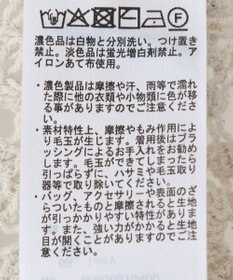 濃色品は白物と分別洗い。つけ置き
禁止。淡色品は蛍光増白剤禁止。ア
イロンあて布使用。
・濃色製品は摩擦や汗、雨等で濡れ
た際に他の衣類や小物類に色が移
る事がありますのでご注意くださ
い。
・素材特性上、摩擦やもみ作用によ
り毛玉が生じます。着用後はブラ
ッシングによるお手入れをお勧め
します。毛玉ができてしまったら
引っぱらずに、ハサミや毛玉取り
器等で取り除いてください。
・バッグ、アクセサリーや表面のざ
らついたものと摩擦されると生地
が引っかかりやすい特性がありま
す。また、強い力がかかると生地
目が開くことがありますのでご注
意ください。